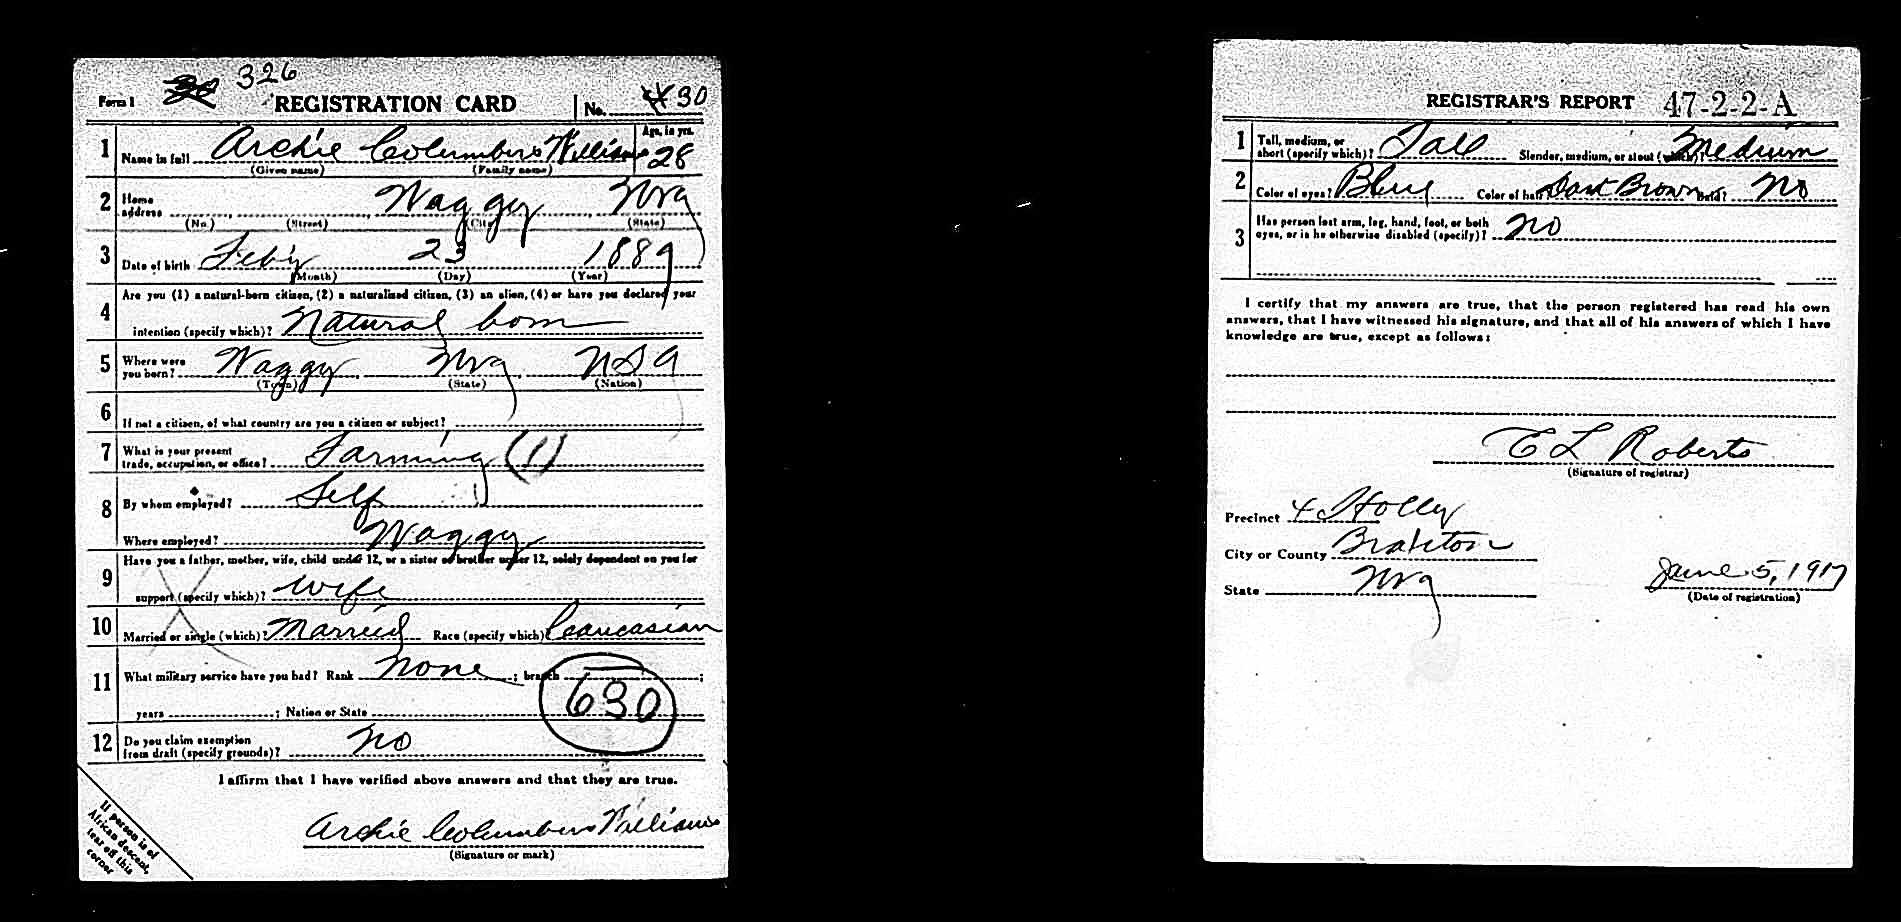 326
Form 1 REGISTRATION CARD No. 30
1 Name in full Archie Columbus Williams Age, in yrs. 28
(Given name) (Family name)
2 Home address Waggy Wva
(No.) (Street) (City) (State)
3 Date of birth Feb'y 23 1889
(Month) (Day) (Year)
Are you (1) a natural-born citizen, (2) a naturalized citizen, (3) an alien, (4) or have you declared your
4 intention (specify which)? Natural born
5 Where were you born? Waggy Wva USA
(Town) (State) (Nation)
6 If not a citizen, of what country are you a citizen or subject?
7 What is your present trade, occupation, or office? Farming (1)
8 By whom employed? Self
Where employed? Waggy
9 Have you a father, mother, wife, child under 12, or a sister or brother under 12, solely dependent on you for
support (specify which)? Wife
10 Married or single (which)? Married Race (specify which) Caucasian
11 What military service have you had? Rank None ; branch ;
years ; Nation or State 630
12 Do you claim exemption from draft (specify grounds)? No
I affirm that I have verified above answers and that they are true.
Archie Columbus Williams
(Signature or mark)
If person is of
African descent,
tear off this
corner
REGISTRAR'S REPORT 47-2-2-A
1 Tall, medium, or short (specify which)? Tall Slender, medium, or stout (which)? Medium
2 Color of eyes? Blue Color of hair? Dark Brown Bald? No
3 Has person lost arm, leg, hand, foot, or both eyes, or is he otherwise disabled (specify)? No
I certify that my answers are true, that the person registered has read his own
answers, that I have witnessed his signature, and that all of his answers of which I have
knowledge are true, except as follows:
E L Roberts
(Signature of registrar)
Precinct 4 Holly
City or County Braxton
State Wva
June 5, 1917
(Date of registration)